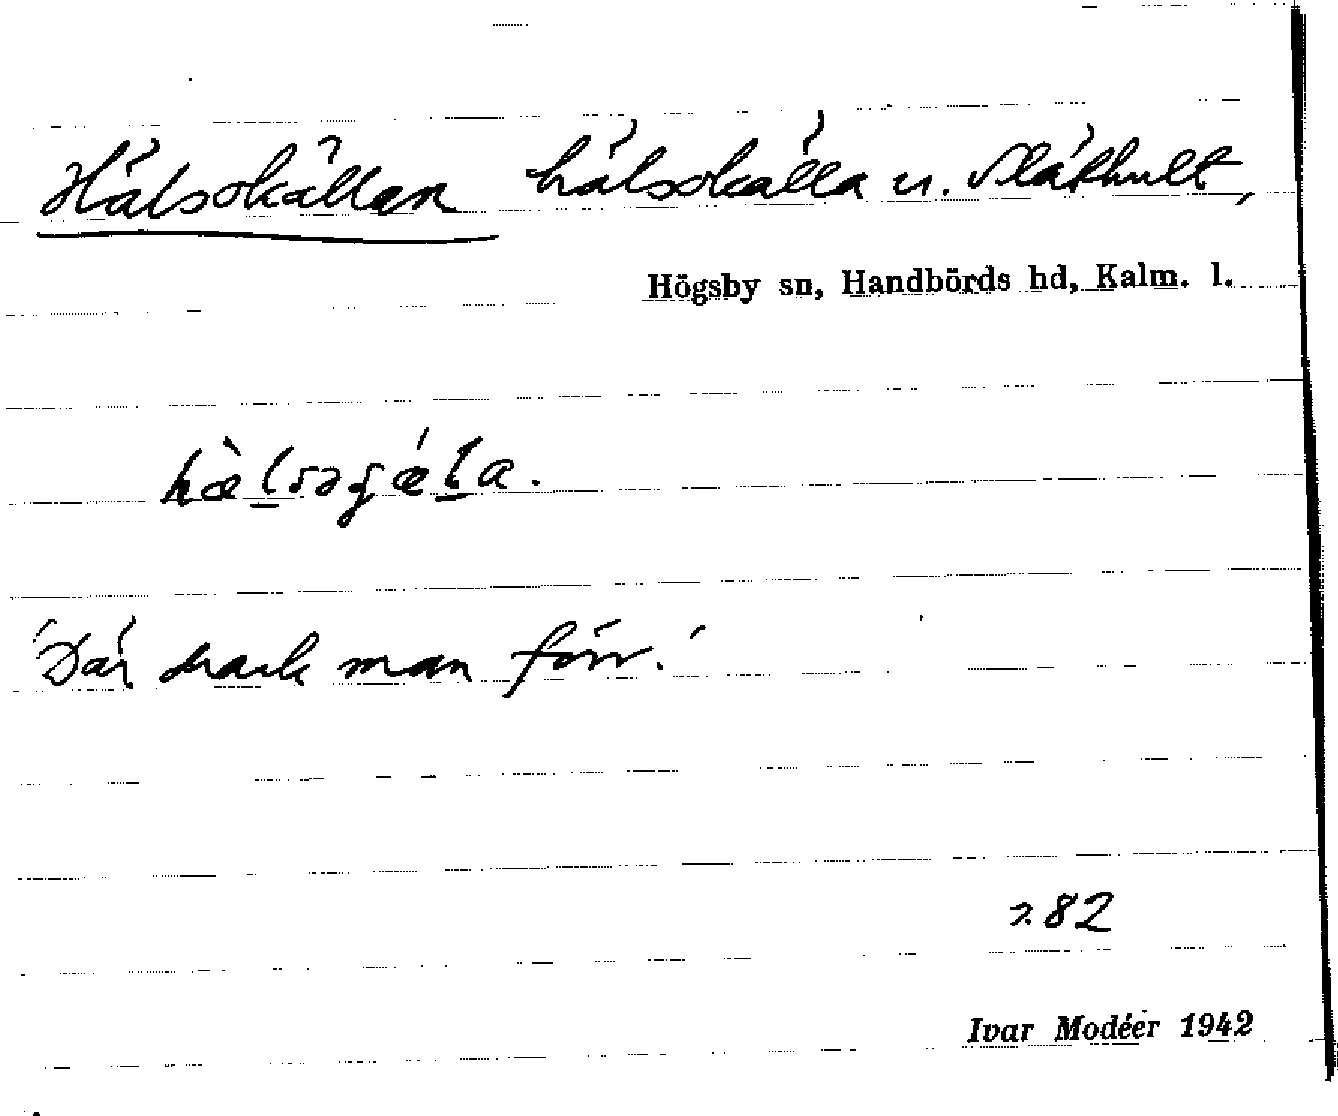 Hälsokällan hälsokälla u. Släthult,
Högsby sn, Handbörds hd, Kalm. l.
'Där drack man förr.'
282
Ivar Modéer 1942